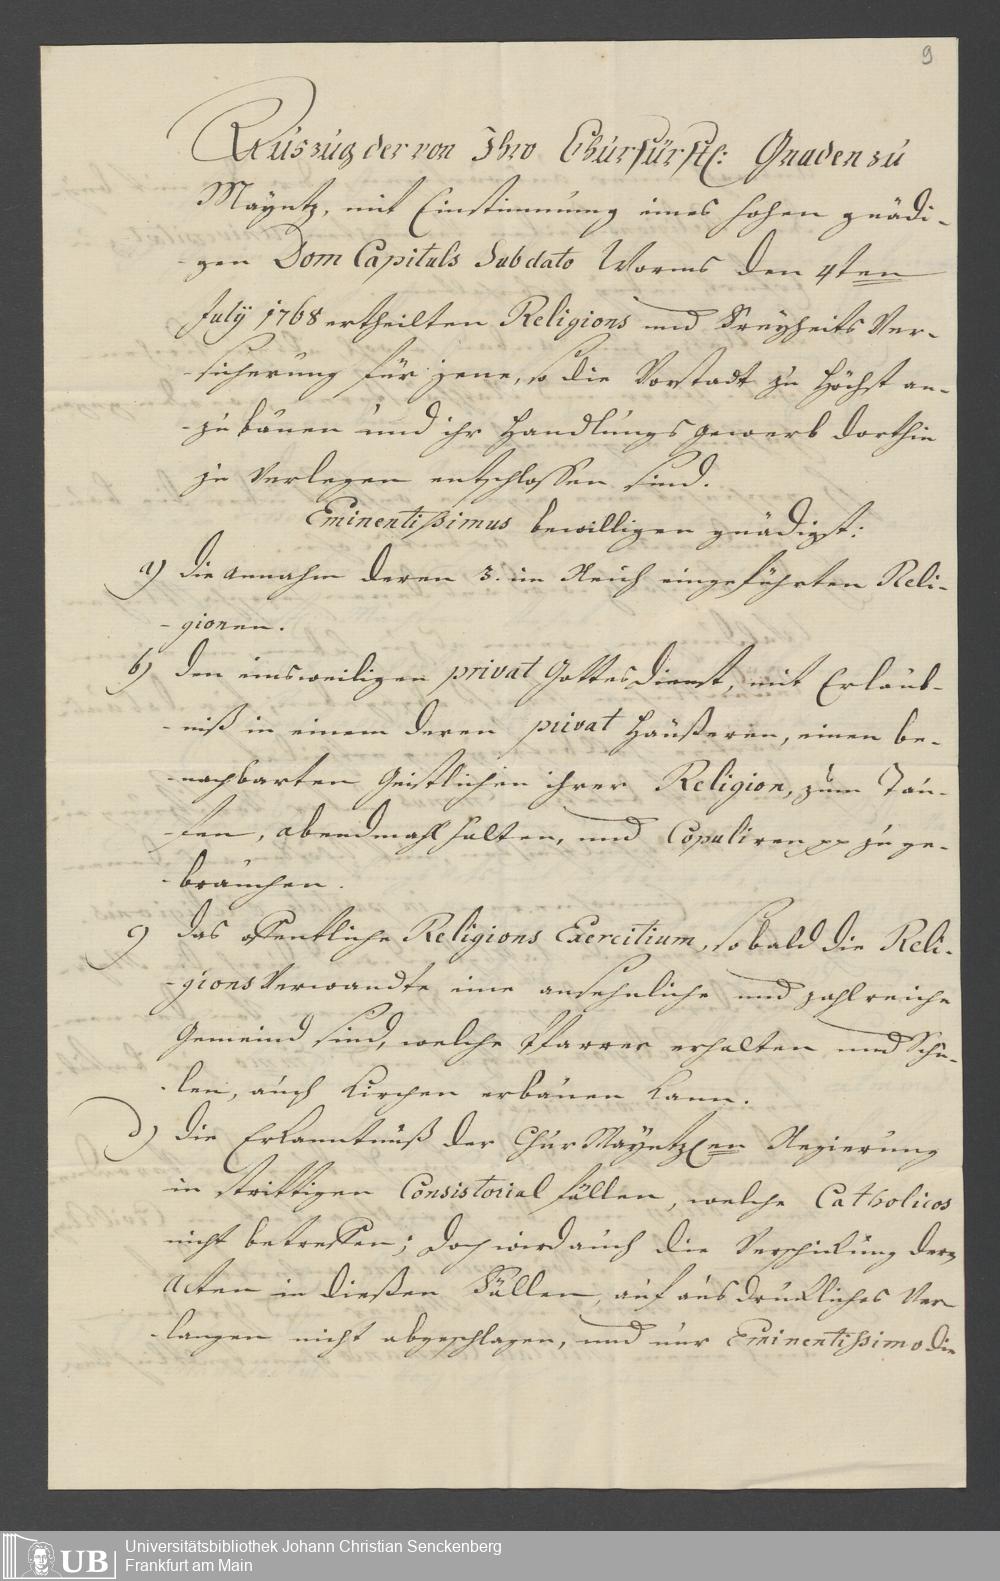 9
Auszug der von Ihro Churfürstl: Gnaden zu
Mäyntz, mit Einstimmung eines hohen gnädi-
-gen Dom Capituls Sub dato Worms den 4ten
July 1768 ertheilten Religions und Freyheits Ver-
-sicherung für jene, so die Vorstadt zu Höchst an-
-zubauen und ihr Handlungs gewerb dorthin
zu verlegen entschlossen sind.
Eminentißimus bewilligen gnädigst:
a) die annahm deren 3. im Reich eingeführten Reli-
-gionen.
b) den einsweiligen privat Gottesdienst, mit Erlaub-
-niß in einem deren privat Häußeren, einen be-
-nachbarten Geistlichen ihrer Religion, zum Tau-
-fen, abendmahl halten, und Copuliren pp zu ge-
-brauchen.
c) das offentliche Religions Exercitium, so bald die Reli-
-gions Verwandte eine ansehnliche und zahlreiche
Gemeind sind, welche Pfarrer erhalten und Schu-
-len, auch Kirchen erbauen kann.
d) die Erkanntnuß der ChurMäyntzen Regierung
in strittigen Consistorial fällen, welche Catholicos
nicht betreffen; doch wird auch die Verschickung deren
Acten in dießen Fällen, auf ausdrückliches Ver
-langen nicht abgeschlagen, und nur Eminentißimo die
UB
Universitätsbibliothek Johann Christian Senckenberg
Frankfurt am Main